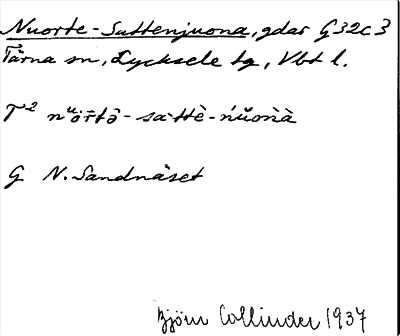 Nuorte-Sattenjuona, gdar G32c3
Tärna sn, Lycksele tg, Vbt l.
T² nᵘȱr̄tə̑-sa·ttè-ńŭoṅà
G N. Sandnäset
Björn Collinder 1937